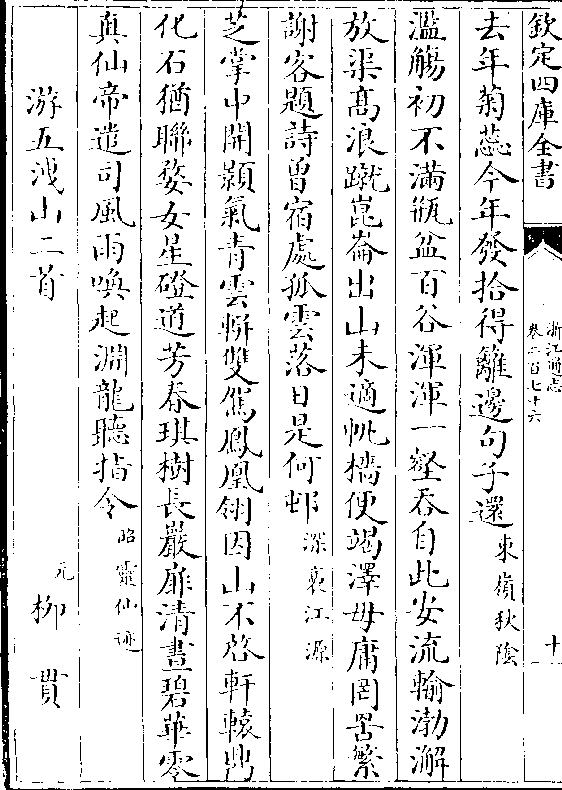 欽定四庫全書
浙江通志
卷二百七十六
十
去年菊蕊今年發拾得籬邊句子還東嶺秋陰
濫觴初不滿瓶盆百谷渾渾一壑吞自此安流輸渤澥
放渠髙浪蹴崑崙出山未適帆檣便竭澤毋庸罔罟繁
謝客題詩曽宿處孤雲落日是何邨深裏江源
芝掌中開顥氣青雲輧雙駕鳳凰翎因山不啓軒轅鼎
化石猶聯婺女星磴道芳春琪樹長巖扉清晝碧華零
真仙帝遣司風雨喚起淵龍聽指令昭靈仙迹
游五洩山二首元柳貫